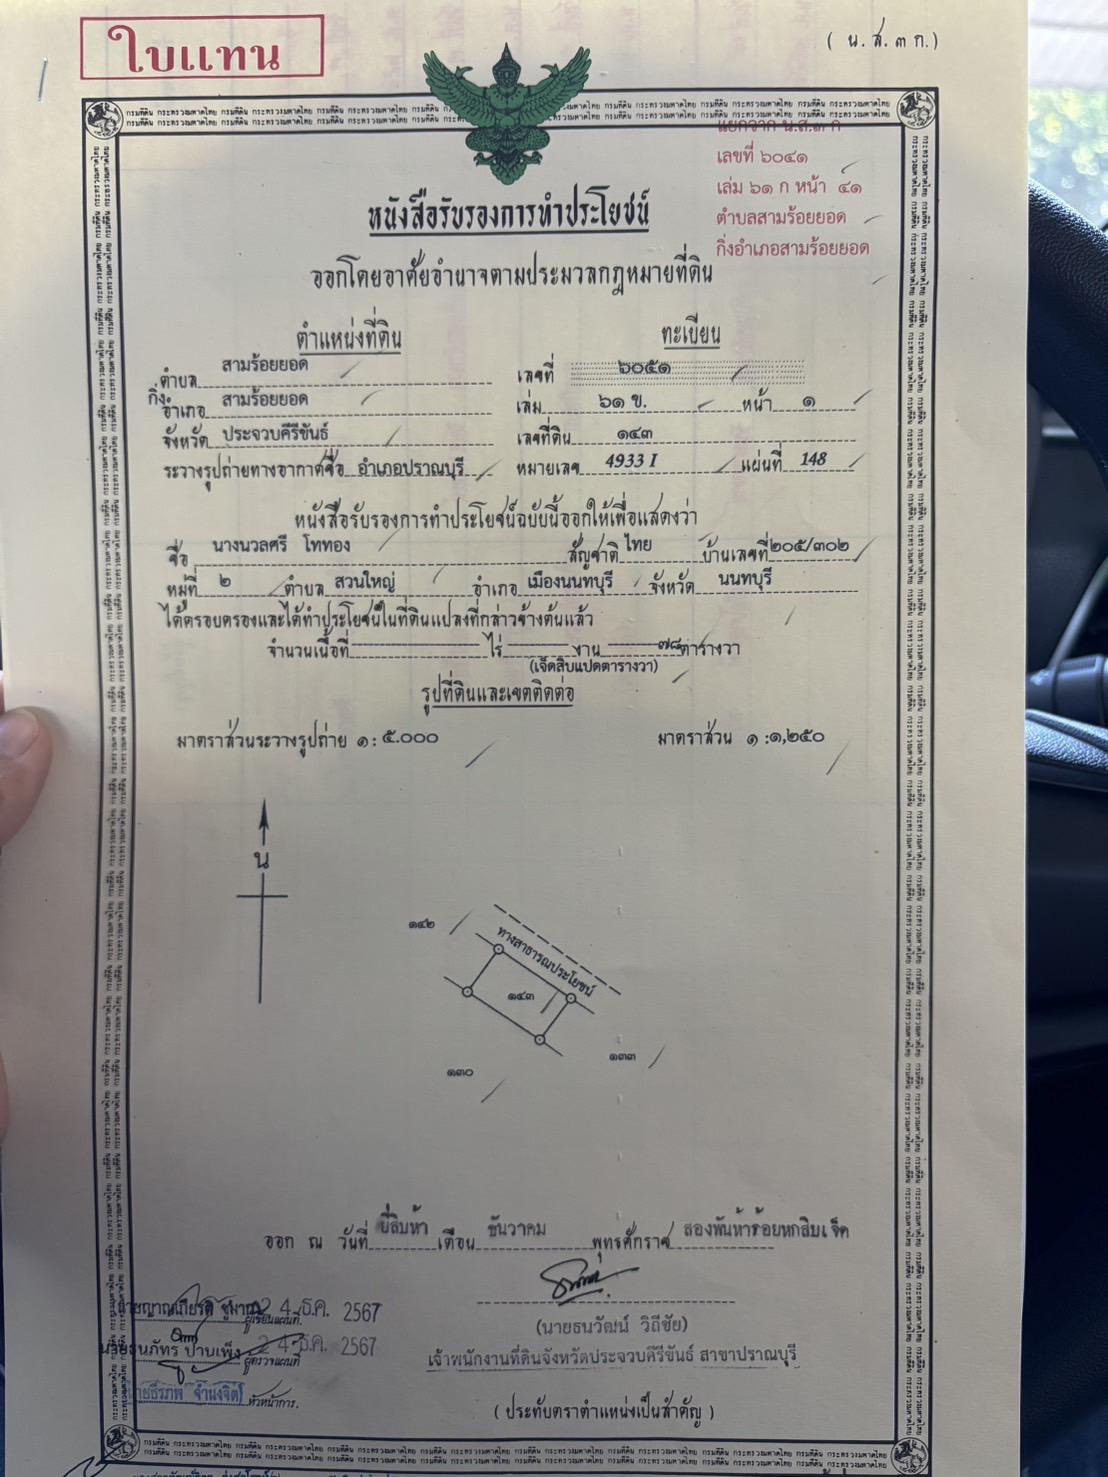 ใบแทน
( น.ส.๓ ก.)
แยกจาก น.ส.๓ ก
เลขที่ ๖๐๔๑
เล่ม ๖๑ ก หน้า ๔๑
ตำบลสามร้อยยอด
กิ่งอำเภอสามร้อยยอด
หนังสือรับรองการทำประโยชน์
ออกโดยอาศัยอำนาจตามประมวลกฎหมายที่ดิน
ตำแหน่งที่ดิน
ทะเบียน
ตำบล สามร้อยยอด
เลขที่ ๖๐๕๑
กิ่งอำเภอ สามร้อยยอด
เล่ม ๖๑ ข. หน้า ๑
จังหวัด ประจวบคีรีขันธ์
เลขที่ดิน ๑๔๓
ระวางรูปถ่ายทางอากาศชื่อ อำเภอปราณบุรี
หมายเลข 4933 I แผ่นที่ 148
หนังสือรับรองการทำประโยชน์ฉบับนี้ออกให้เพื่อแสดงว่า
ชื่อ นางนวลศรี โททอง สัญชาติ ไทย บ้านเลขที่ ๒๐๕/๓๐๒
หมู่ที่ ๒ ตำบล สวนใหญ่ อำเภอ เมืองนนทบุรี จังหวัด นนทบุรี
ได้ครอบครองและได้ทำประโยชน์ในที่ดินแปลงที่กล่าวข้างต้นแล้ว
จำนวนเนื้อที่ ไร่ งาน ๗๘ ตารางวา
(เจ็ดสิบแปดตารางวา)
รูปที่ดินและเขตติดต่อ
มาตราส่วนระวางรูปถ่าย ๑ : ๕.๐๐๐
มาตราส่วน ๑ :๑,๒๕๐
น
๑๔๒
ทางสาธารณประโยชน์
๑๔๓
๑๓๓
๑๓๐
ออก ณ วันที่ ยี่สิบห้า เดือน ธันวาคม พุทธศักราช สองพันห้าร้อยหกสิบเจ็ด
(นายธนวัฒน์ วิถีชัย)
เจ้าพนักงานที่ดินจังหวัดประจวบคีรีขันธ์ สาขาปราณบุรี
ผู้เขียนแผนที่. 24 ธ.ค. 2567
ปานเพ็ง ผู้ตรวจแผนที่ 24 ธ.ค. 2567
หัวหน้าการ.
( ประทับตราตำแหน่งเป็นสำคัญ )
กรมที่ดิน กระทรวงมหาดไทย